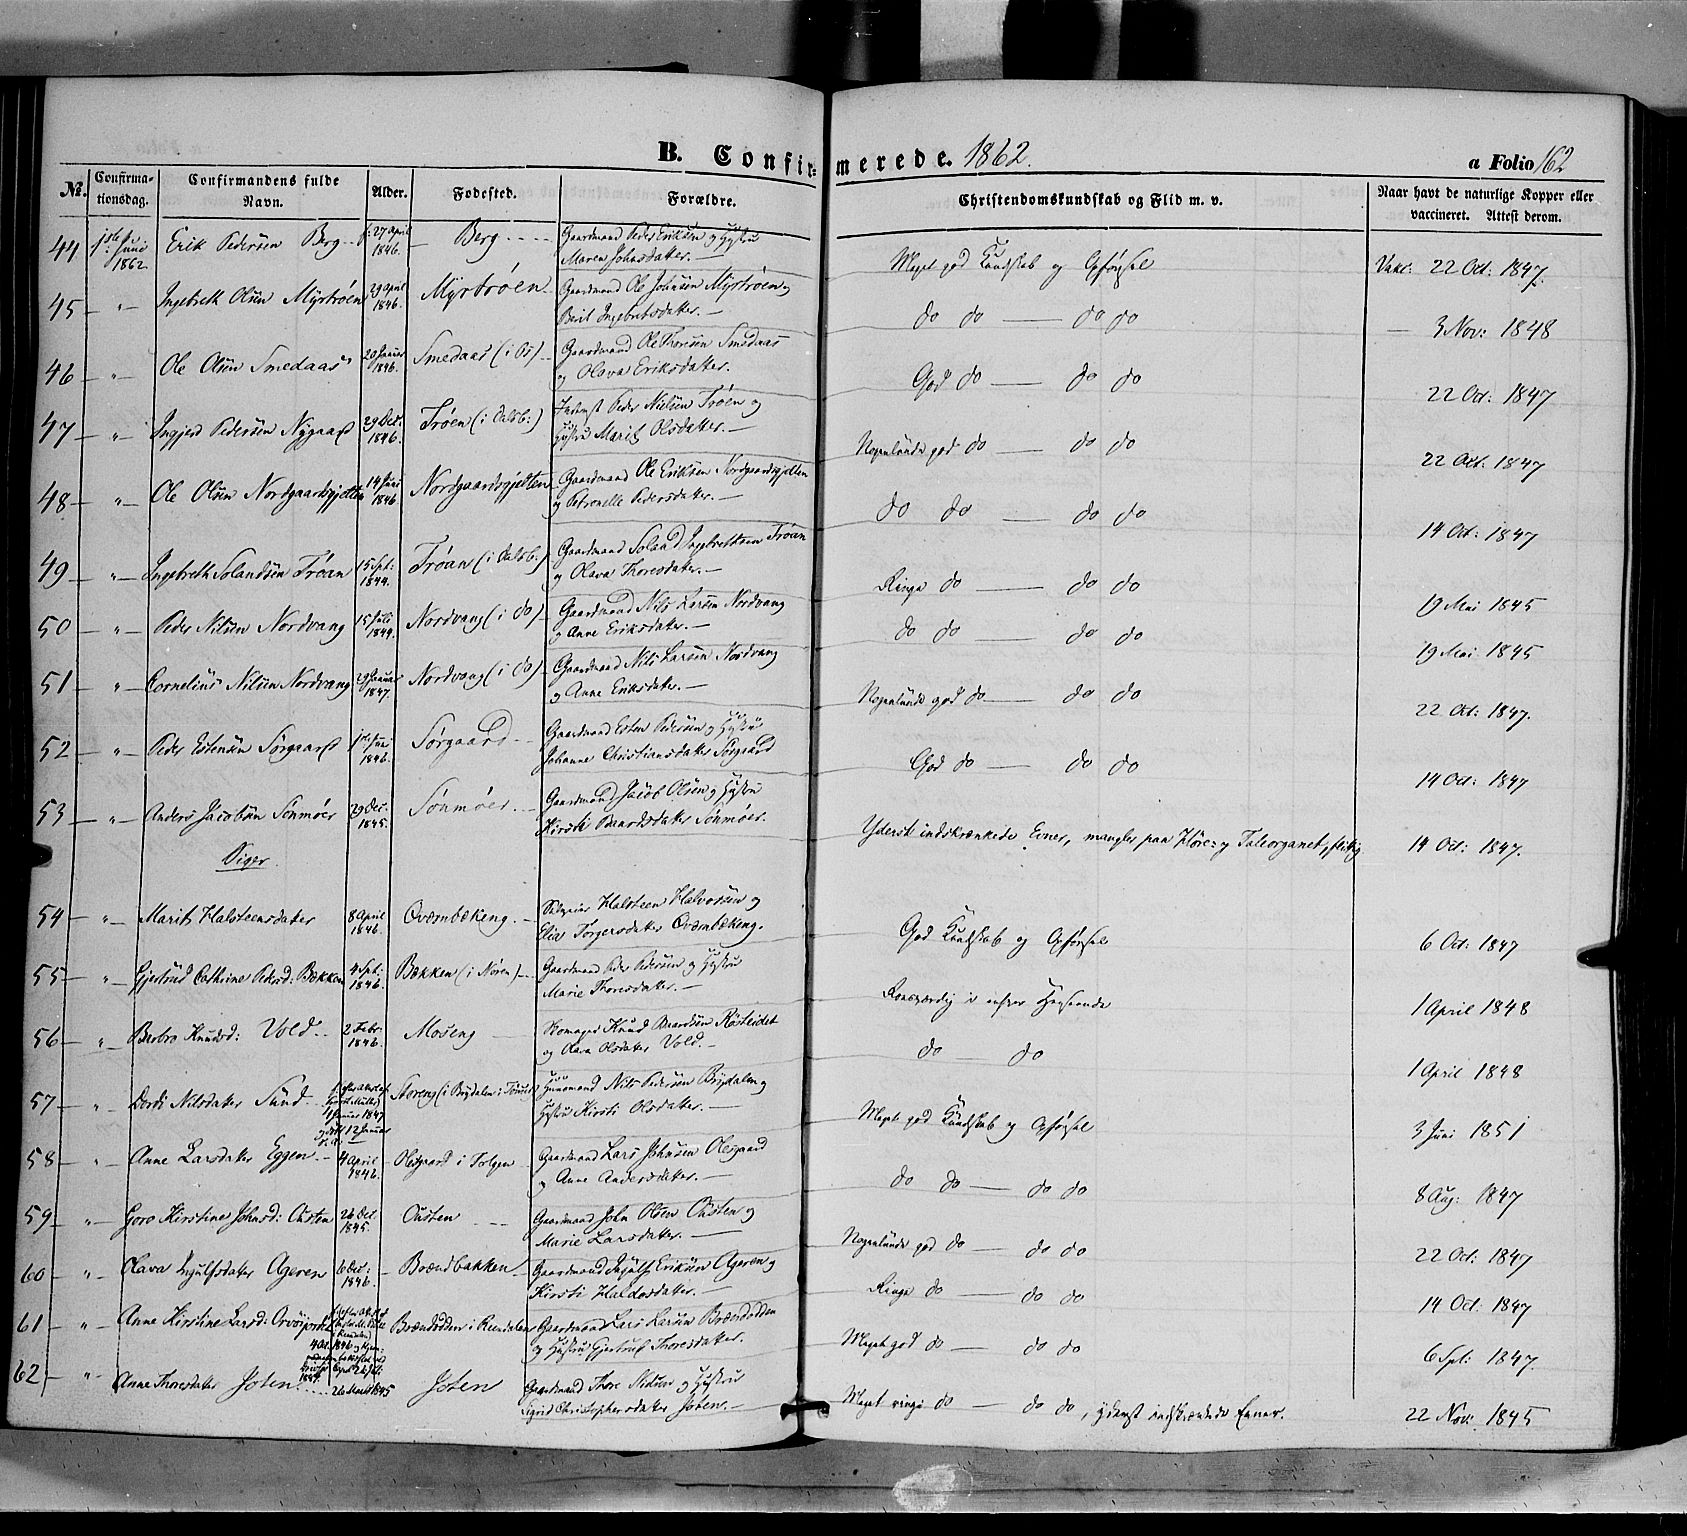 B. Confir-merede. 1862. a Folio 162
No. Confirma-tionsdag. Confirmandens fulde Navn. Alder. Fødested. Forældre. Christendomskundskab og Flid m. v. Naar havt de naturlige Kopper eller vaccineret. Attest derom.
44 1ste Juni 1862. Erik Pedersen Berg f. 27 April 1846. Berg Gaardmand Peder Eriksen og Hustru Maren Johnsdatter. Meget god Kundskab og Opførsel Vakc. 22 Oct: 1847.
45 " Ingebreth Olsen Myrtrøen 29 April 1846. Myrtrøen Gaardmand Ole Johnsen Myrtrøen og Berit Ingebretsdatter. do do do do 3 Nov: 1848
46 " Ole Olsen Smedaas 20 Januar 1846. Smedaas (i Os) Gaardmand Ole Thoresen Smedaas og Olava Eriksdatter. God do do do 22 Oct: 1847
47 " Ingjerd Pedersen Nygaard 29 Dec. 1846. Trøen (i Dalsb:) Inderst Peder Nielsen Trøen og Hustru Marit Olsdatter. Nogenlunde god do do do 22 Oct. 1847
48 " Ole Olsen Nordgaardsjelten 14 Juni 1846 Nordgaardsgjelten Gaardmand Ole Eriksen Nordgaardsgjelten og Petronelle Pedersdatter. do do do do 14 Oct: 1847
49 " Ingebreth Solandsen Trøan 15 Spt: 1844. Trøan (i Dalsb:) Gaardmand Soland Ingebrethsen Trøan og Olava Thoresdatter. Ringe do do do 19 Mai 1845
50 " Peder Nilsen Nordvang 15 Juli 1844. Nordvang (i do) Gaardmand Nils Larsen Nordvang og Anne Eriksdatter. do do do do 19 Mai 1845
51 " Cornelius Nilsen Nordvang 29 Januar 1847. Nordvang (i do) Gaardmand Nils Larsen Nordvang og Anne Eriksdatter. Nogenlunde god do do do 22 Oct: 1847.
52 " Peder Estensen Sørgaard 1846. Sørgaard Gaardmand Esten Pedersen og Hustru Johanne Christiansdatter Sørgaard God do do do 14 Oct: 1847
53 " Anders Jacobsen Sønmøer 29 Dec. 1845. Sønmøer Gaardmand Jacob Olsen og Hustru Kirsti Baardsdatter Sønmøer. Yderst indskrænkede Evner, mangler paa Høre- og Taleorganet, flittig 14 Oct: 1847.
Piger.
54 " Marit Halsteensdatter 8 April 1846. Qværnbækeng. Halsteen Halvorsen og Elia Torgersdatter Qværnbækeng. God Kundskab og Opførsel 6 Oct: 1847
55 " Gjertrud Cathrine Pedersd: Bækken 4 Spt: 1846. Bækken (i Nøren) Gaardmand Peder Pedersen og Hustru Marie Thoresdatter. Roesværdig i enhver Henseende 1 April 1848
56 " Berbro Knudsd: Vold 2 Febr. 1846. Moseng Skomager Knud Baardsen Røsteidet og Olava Olsdatter Vold. do do 1 April 1848
57 " Dordi Nilsdatter Sund 1 Januar 1847 12 Januar Storeng (i Brydalen i Tønset) Huusmand Nils Pedersen Brydalen og Hustru Kirsti Olsdatter. Meget god Kundskab og Opførsel 3 Juni 1851
58 " Anne Larsdatter Eggen 4 April 1846. Olesgaard i Tolgen Gaardmand Lars Johnsen Olesgaard og Anne Andersdatter. do do do do 8 Aug: 1847
59 " Goro Kirstine Johnsd: Ousten 26 Oct 1845. Ousten Gaardmand John Olsen Ousten og Marie Larsdatter. Nogenlunde god do do do 22 Oct: 1847
60 " Olava Ingulfsdatter Ageren 6 Dec: 1846. Brændbakken Gaardmand Ingulf Eriksen Ageren og Kirsti Haldosdatter. Ringe do do do 14 Oct: 1847
61 " Anne Kirstine Larsd: 4 Oct. 1846 Brændodden i Rendalen Gaardmand Lars Larsen Brændodden og Hustru Gjertrud Thoresdatter. Meget god do do do 6 Spt: 1847.
62 " Anne Thoresdatter Joten 26 Marts 1845 Joten Gaardmand Thore Nilsen og Hustru Sigrid Christophersdatter Joten. Meget ringe do do do, yderst indskrænkede Evner. 22 Nov: 1845